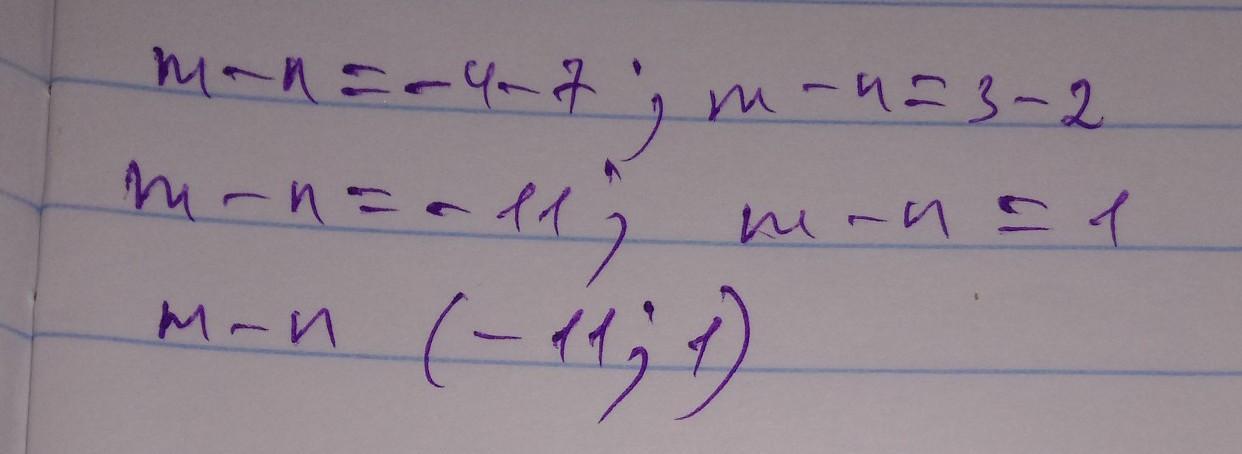 m - n = - 4 - 7 ; m - n = 3 - 2
m - n = - 11 ; m - n = 1
m - n (- 11 ; 1)